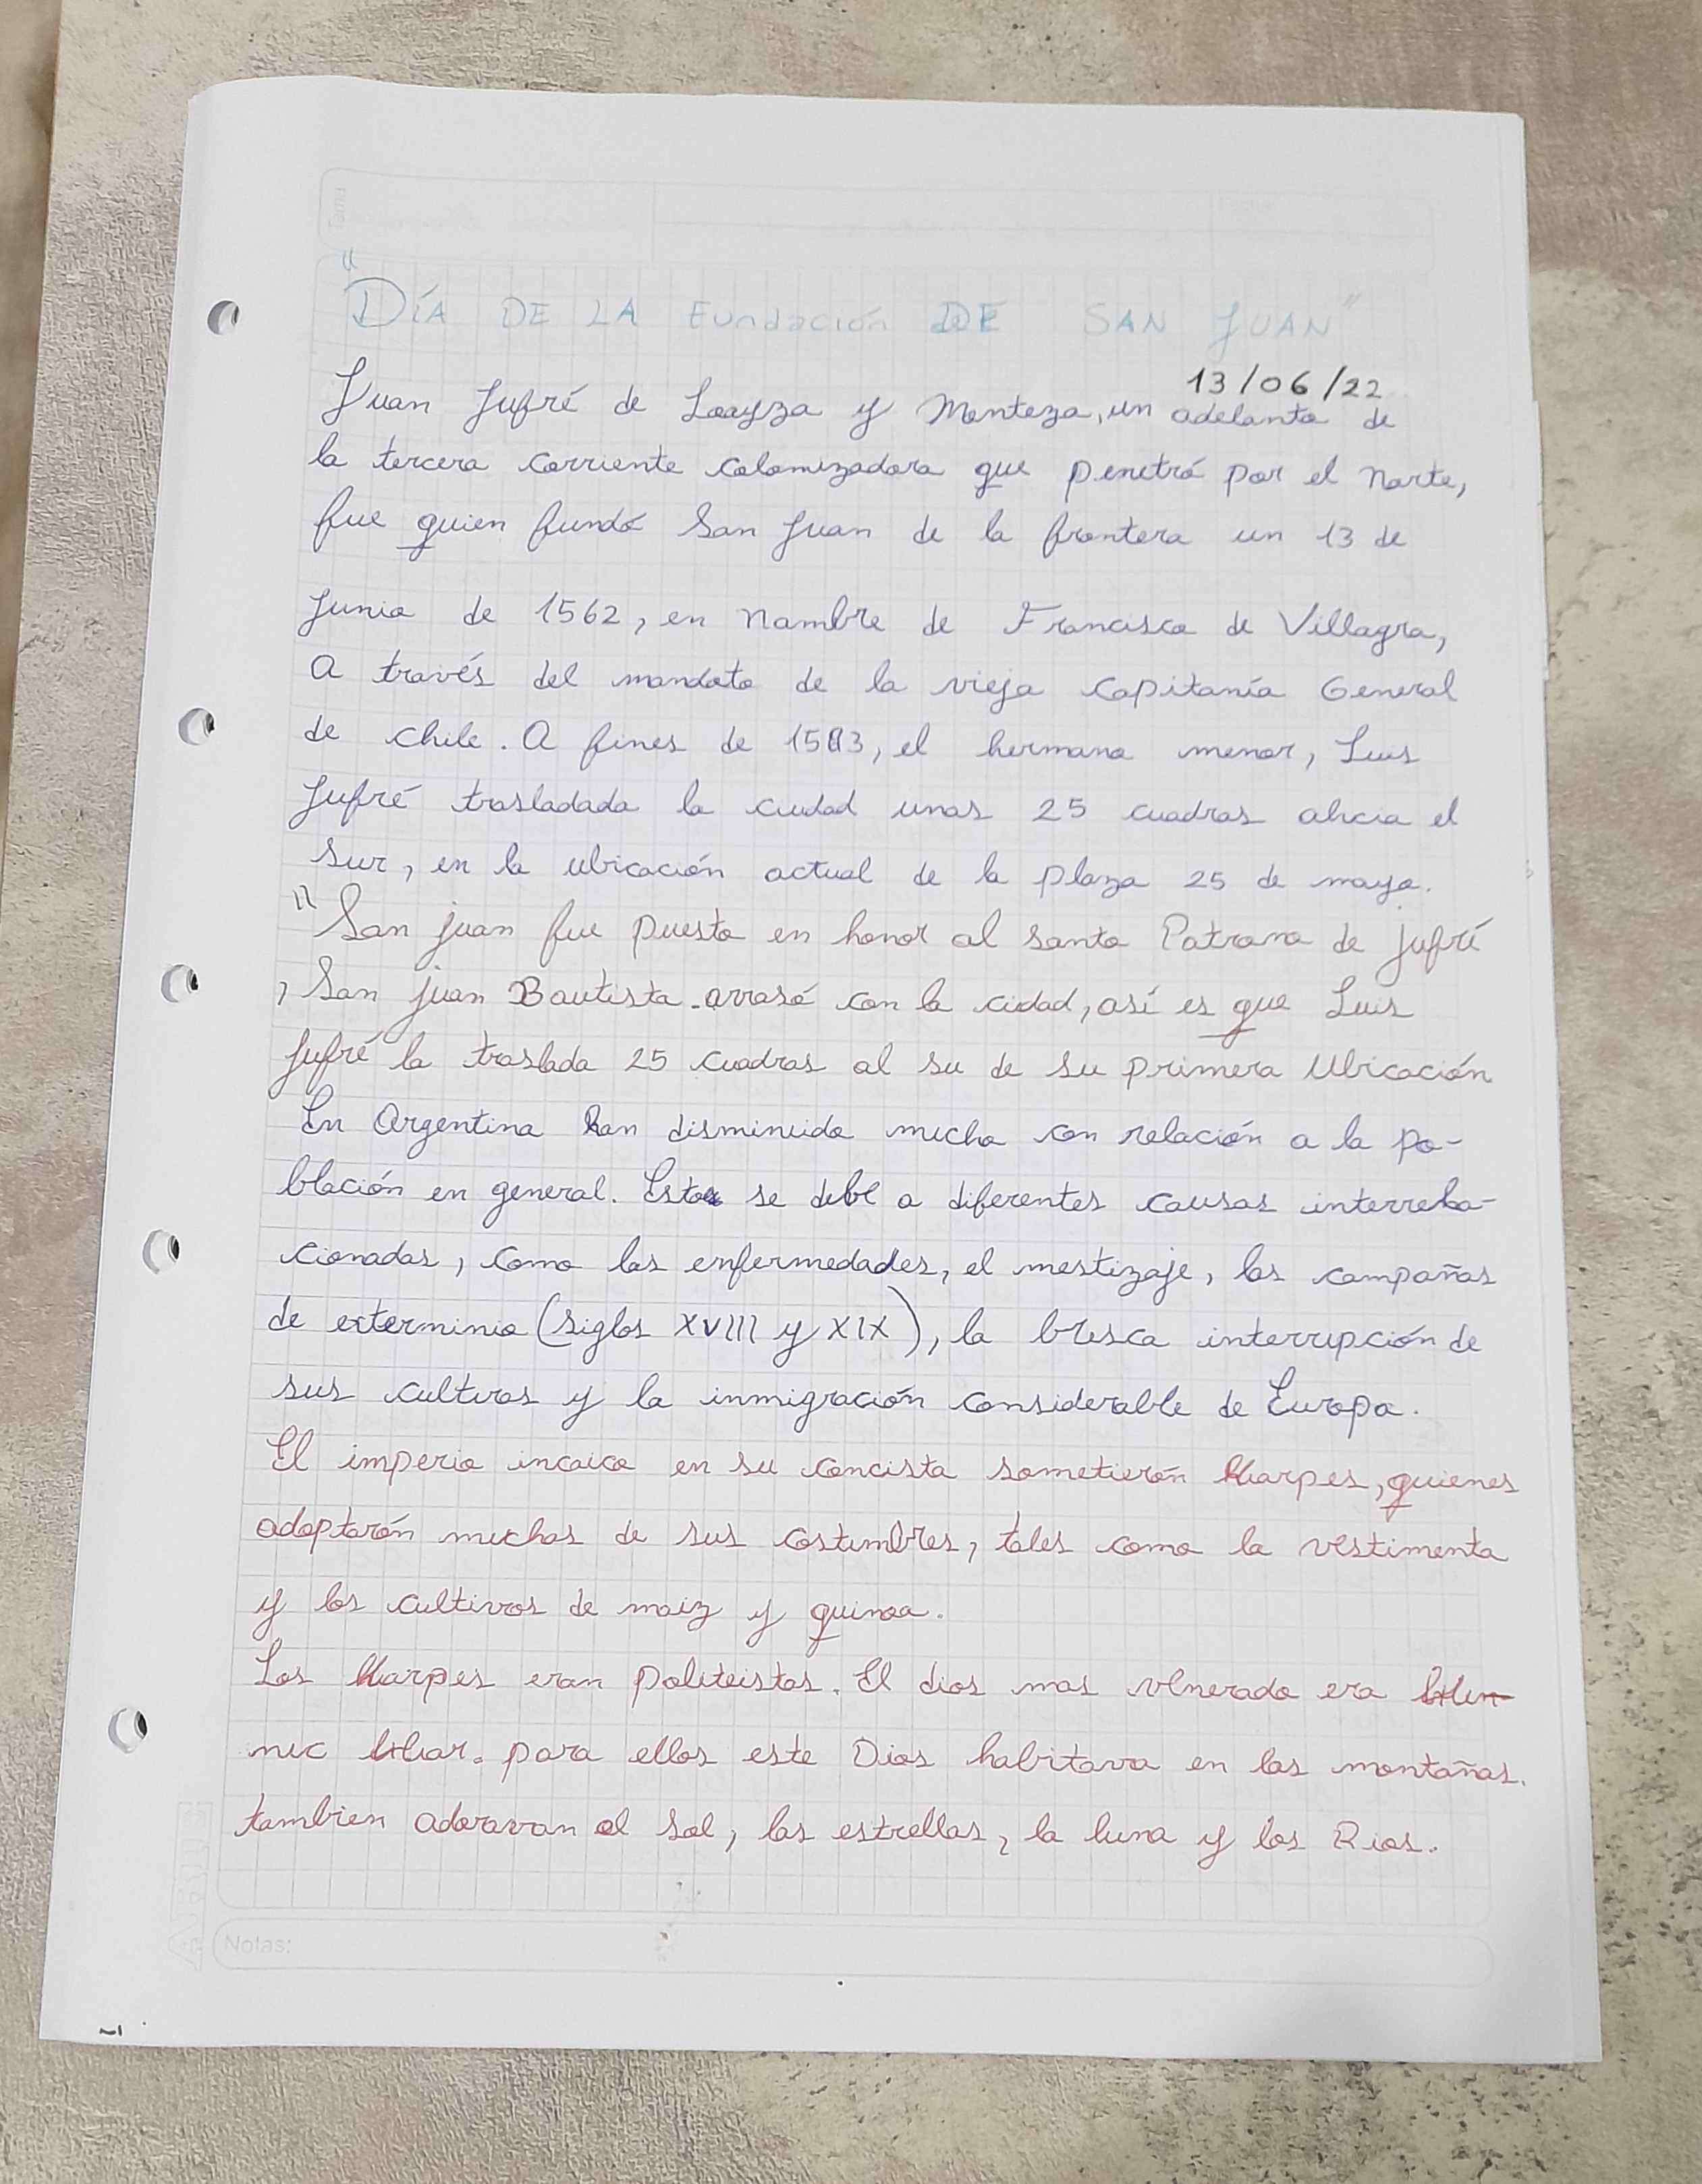 "DÍA DE LA Fundación DE SAN JUAN"
13/06/22
Juan Jufré de Loayza y Monteza, un adelanto de
la tercera corriente colomizadora que penetró por el Norte,
fue quien fundó San Juan de la frontera un 13 de
Junio de 1562, en nombre de Francisco de Villagra,
A través del mandato de la vieja Capitanía General
de chile. A fines de 1583, el hermano menor, Luis
Jufré trasladada la ciudad unas 25 cuadras ahcia el
sur, en la ubicación actual de la plaza 25 de mayo.
"San juan fue puesto en honor al santo Patrono de jufré
, San juan Bautista. arrasó con la cidad, así es que Luis
Jufré la traslada 25 cuadras al su de su primera Ubicación
En Argentina han disminuido mucho con relación a la po-
blación en general. Esto se debe a diferentes causas interrela-
cionadas, como las enfermedades, el mestizaje, las campañas
de exterminio (siglos XVIII y XIX), la brusca interrupción de
sus culturas y la inmigración considerable de Europa.
El imperio incaico en su concista sometierón Huarpes, quienes
adoptarón muchas de sus costumbres, tales como la vestimenta
y los cultivos de maiz y quinoa.
Los Huarpes eran politeistas. El dios mas venerado era Hun-
nuc Huar. para ellos este Dios habitava en las montañas.
tambien adoravan el sol, las estrellas, la luna y los Rios.
Notas:
ARTE